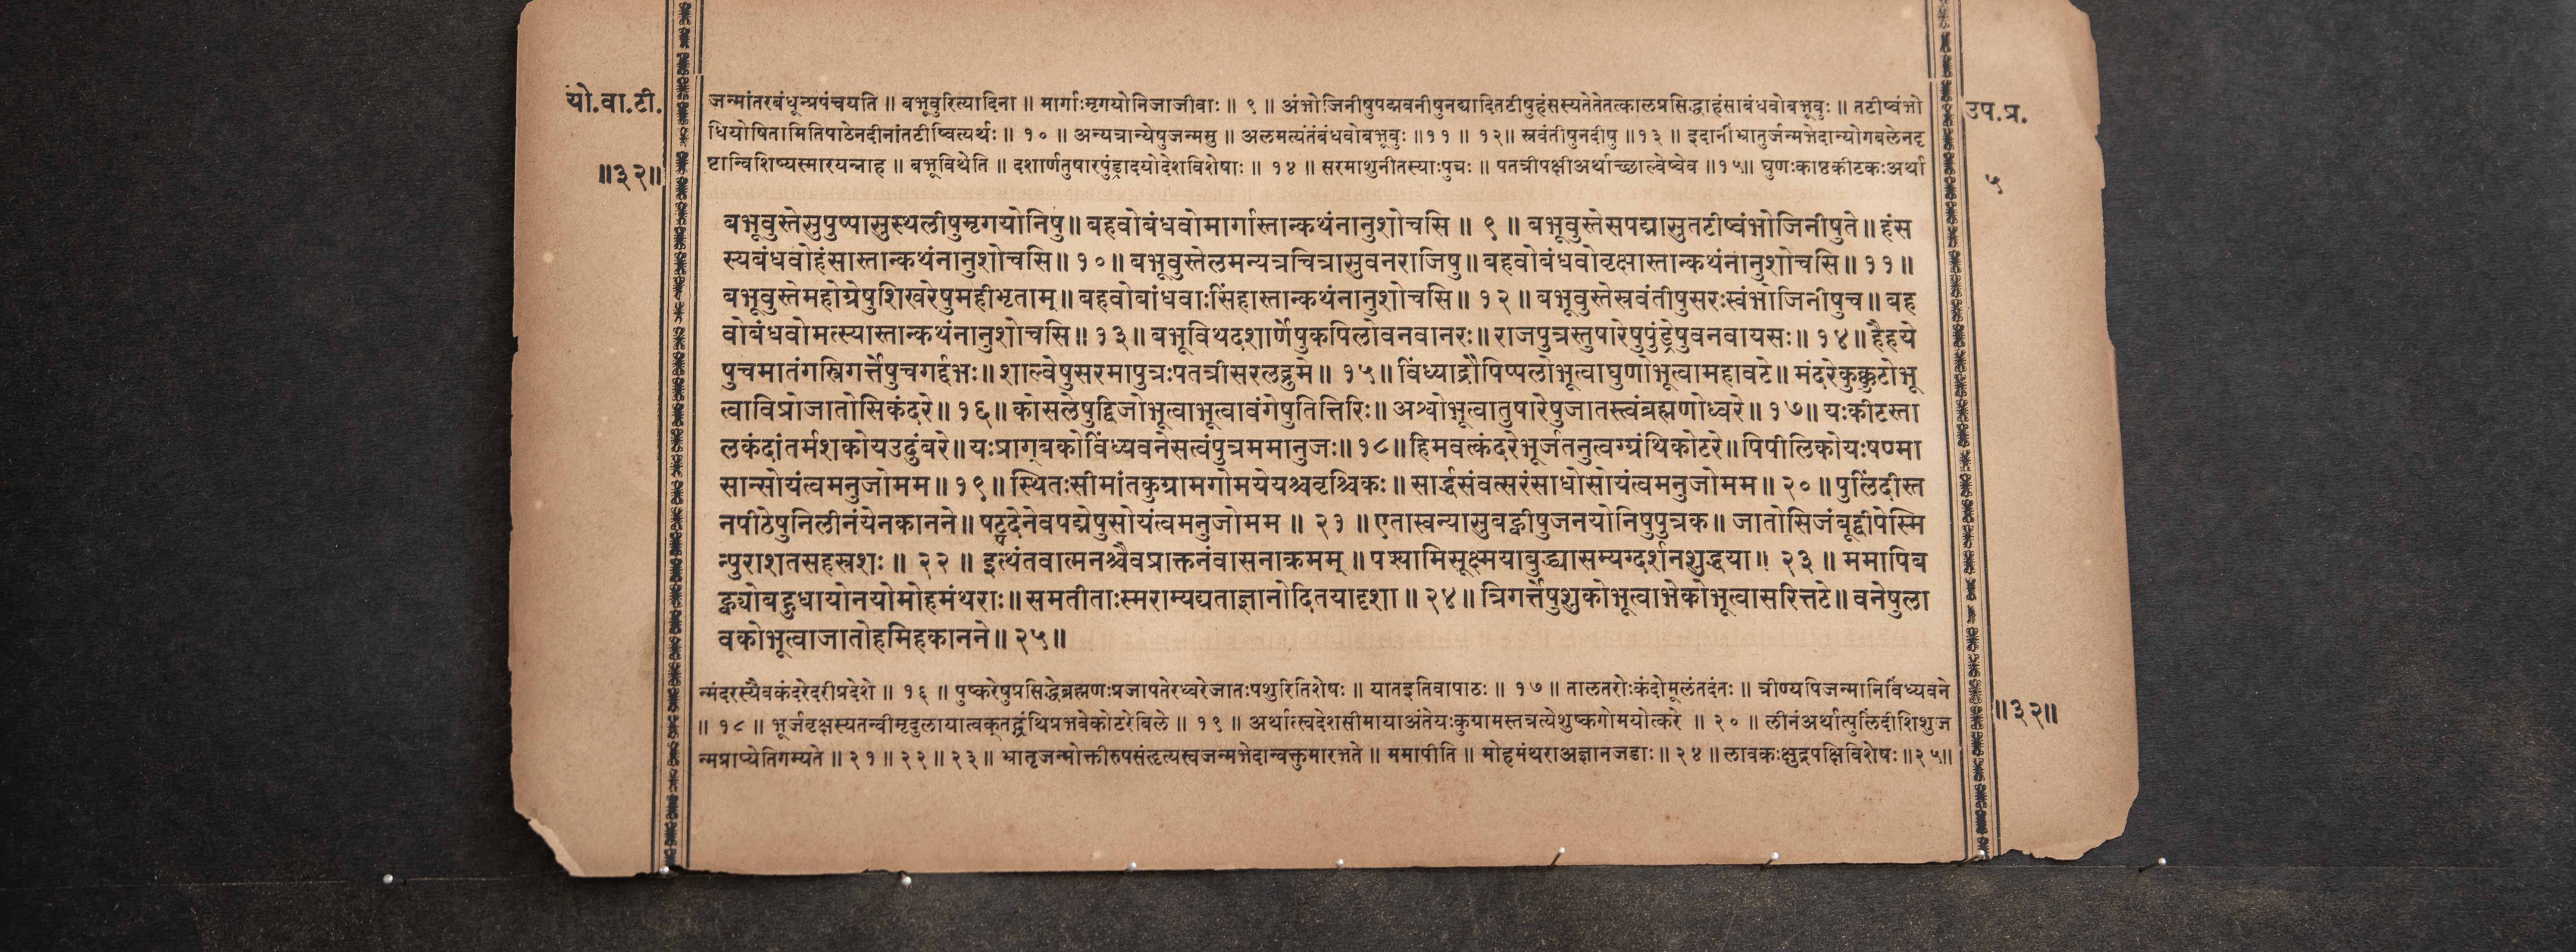 यो.वा.टी.
॥३२॥
जन्मांतरबंधून्प्रपंचयति ॥ बभूवुरित्यादिना ॥ मार्गाःमृगयोनिजाजीवाः ॥ ९ ॥ अंभोजिनीषुपद्मवनीषुनद्यादितटीषुहंसस्यतेतेतत्कालप्रसिद्धाहंसाबंधवोबभूवुः ॥ तटीष्वंभो
धियोषितामितिपाठेनदीनांतटीष्वित्यर्थः ॥ १० ॥ अन्यत्रान्येषुजन्मसु ॥ अलमत्यंतंबंधवोबभूवुः ॥११ ॥ १२॥ स्रवंतीषुनदीषु ॥१३ ॥ इदानींभ्रातुर्जन्मभेदान्योगबलेनदृ
ष्टान्विशिष्यस्मारयन्नाह ॥ बभूविथेति ॥ दशार्णतुषारपुंड्रादयोदेशविशेषाः ॥ १४ ॥ सरमाशुनीतस्याःपुत्रः ॥ पतत्रीपक्षीअर्थाच्छाल्वेष्वेव ॥१५॥ घुणःकाष्ठकीटकःअर्था
उप.प्र.
५
बभूवुस्तेसुपुष्पासुस्थलीषुमृगयोनिषु॥ बहवोबंधवोमार्गास्तान्कथंनानुशोचसि ॥ ९ ॥ बभूवुस्तेसपद्मासुतटीष्वंभोजिनीषुते॥ हंस
स्यबंधवोहंसास्तान्कथंनानुशोचसि॥ १०॥ बभूवुस्तेलमन्यत्रचित्रासुवनराजिषु॥ बहवोबंधवोवृक्षास्तान्कथंनानुशोचसि॥ ११॥
बभूवुस्तेमहोग्रेषुशिखरेषुमहीभृताम्॥ बहवोबांधवाःसिंहास्तान्कथंनानुशोचसि॥ १२ ॥ बभूवुस्तेस्रवंतीषुसरःस्वंभोजिनीषुच॥ बह
वोबंधवोमत्स्यास्तान्कथंनानुशोचसि॥ १३॥ बभूविथदशार्णेषुकपिलोवनवानरः॥ राजपुत्रस्तुषारेषुपुंड्रेषुवनवायसः॥ १४॥ हैहये
षुचमातंगस्त्रिगर्त्तेषुचगर्द्दभः॥ शाल्वेषुसरमापुत्रःपतत्रीसरलद्रुमे॥ १५॥ विंध्याद्रौपिप्पलोभूत्वाघुणोभूत्वामहावटे॥ मंदरेकुक्कुटोभू
त्वाविप्रोजातोसिकंदरे॥ १६॥ कोसलेषुद्विजोभूत्वाभूत्वावंगेषुतित्तिरिः॥ अश्वोभूत्वातुषारेषुजातस्त्वंब्रह्मणोध्वरे॥ १७॥ यःकीटस्ता
लकंदांतर्मशकोयउदुंबरे॥ यःप्राग्बकोविंध्यवनेसत्वंपुत्रममानुजः॥१८॥ हिमवत्कंदरेभूर्जतनुत्वग्ग्रंथिकोटरे॥ पिपीलिकोयःषण्मा
सान्सोयंत्वमनुजोमम॥ १९॥ स्थितःसीमांतकुग्रामगोमयेयश्चवृश्चिकः॥ सार्द्धसंवत्सरंसाधोसोयंत्वमनुजोमम॥ २०॥ पुलिंदीस्त
नपीठेषुनिलीनंयेनकानने॥ षट्पदेनेवपद्मेषुसोयंत्वमनुजोमम ॥ २१ ॥ एतास्वन्यासुबह्वीषुजनयोनिषुपुत्रक॥ जातोसिजंबूद्वीपेस्मि
न्पुराशतसहस्रशः ॥ २२ ॥ इत्थंतवात्मनश्चैवप्राक्तनंवासनाक्रमम् ॥ पश्यामिसूक्ष्मयाबुद्ध्यासम्यग्दर्शनशुद्धया॥ २३ ॥ ममापिब
ह्व्योबहुधायोनयोमोहमंथराः॥ समतीताःस्मराम्यद्यताज्ञानोदितयादृशा ॥ २४॥ त्रिगर्त्तेषुशुकोभूत्वाभेकोभूत्वासरित्तटे॥ वनेषुला
वकोभूत्वाजातोहमिहकानने॥ २५॥
न्मंदरस्यैवकंदरेदरीप्रदेशे ॥ १६ ॥ पुष्करेषुप्रसिद्धेब्रह्मणःप्रजापतेरध्वरेजातःपशुरितिशेषः ॥ यातइतिवापाठः ॥ १७ ॥ तालतरोःकंदोमूलंतदंतः ॥ त्रीण्यपिजन्मानिविंध्यवने
॥ १८ ॥ भूर्जवृक्षस्यतन्वीमृदुलायात्वक्तद्ग्रंथिप्रभवेकोटरेबिले ॥ १९ ॥ अर्थात्स्वदेशसीमायाअंतेयःकुग्रामस्तत्रत्येशुष्कगोमयोत्करे ॥ २० ॥ लीनंअर्थात्पुलिंदीशिशुज
न्मप्राप्येतिगम्यते ॥ २१ ॥ २२ ॥ २३ ॥ भ्रातृजन्मोक्तीरुपसंहृत्यस्वजन्मभेदान्वक्तुमारभते ॥ ममापीति ॥ मोहमंथराअज्ञानजडाः ॥ २४ ॥ लावकःक्षुद्रपक्षिविशेषः ॥२५॥
॥३२॥